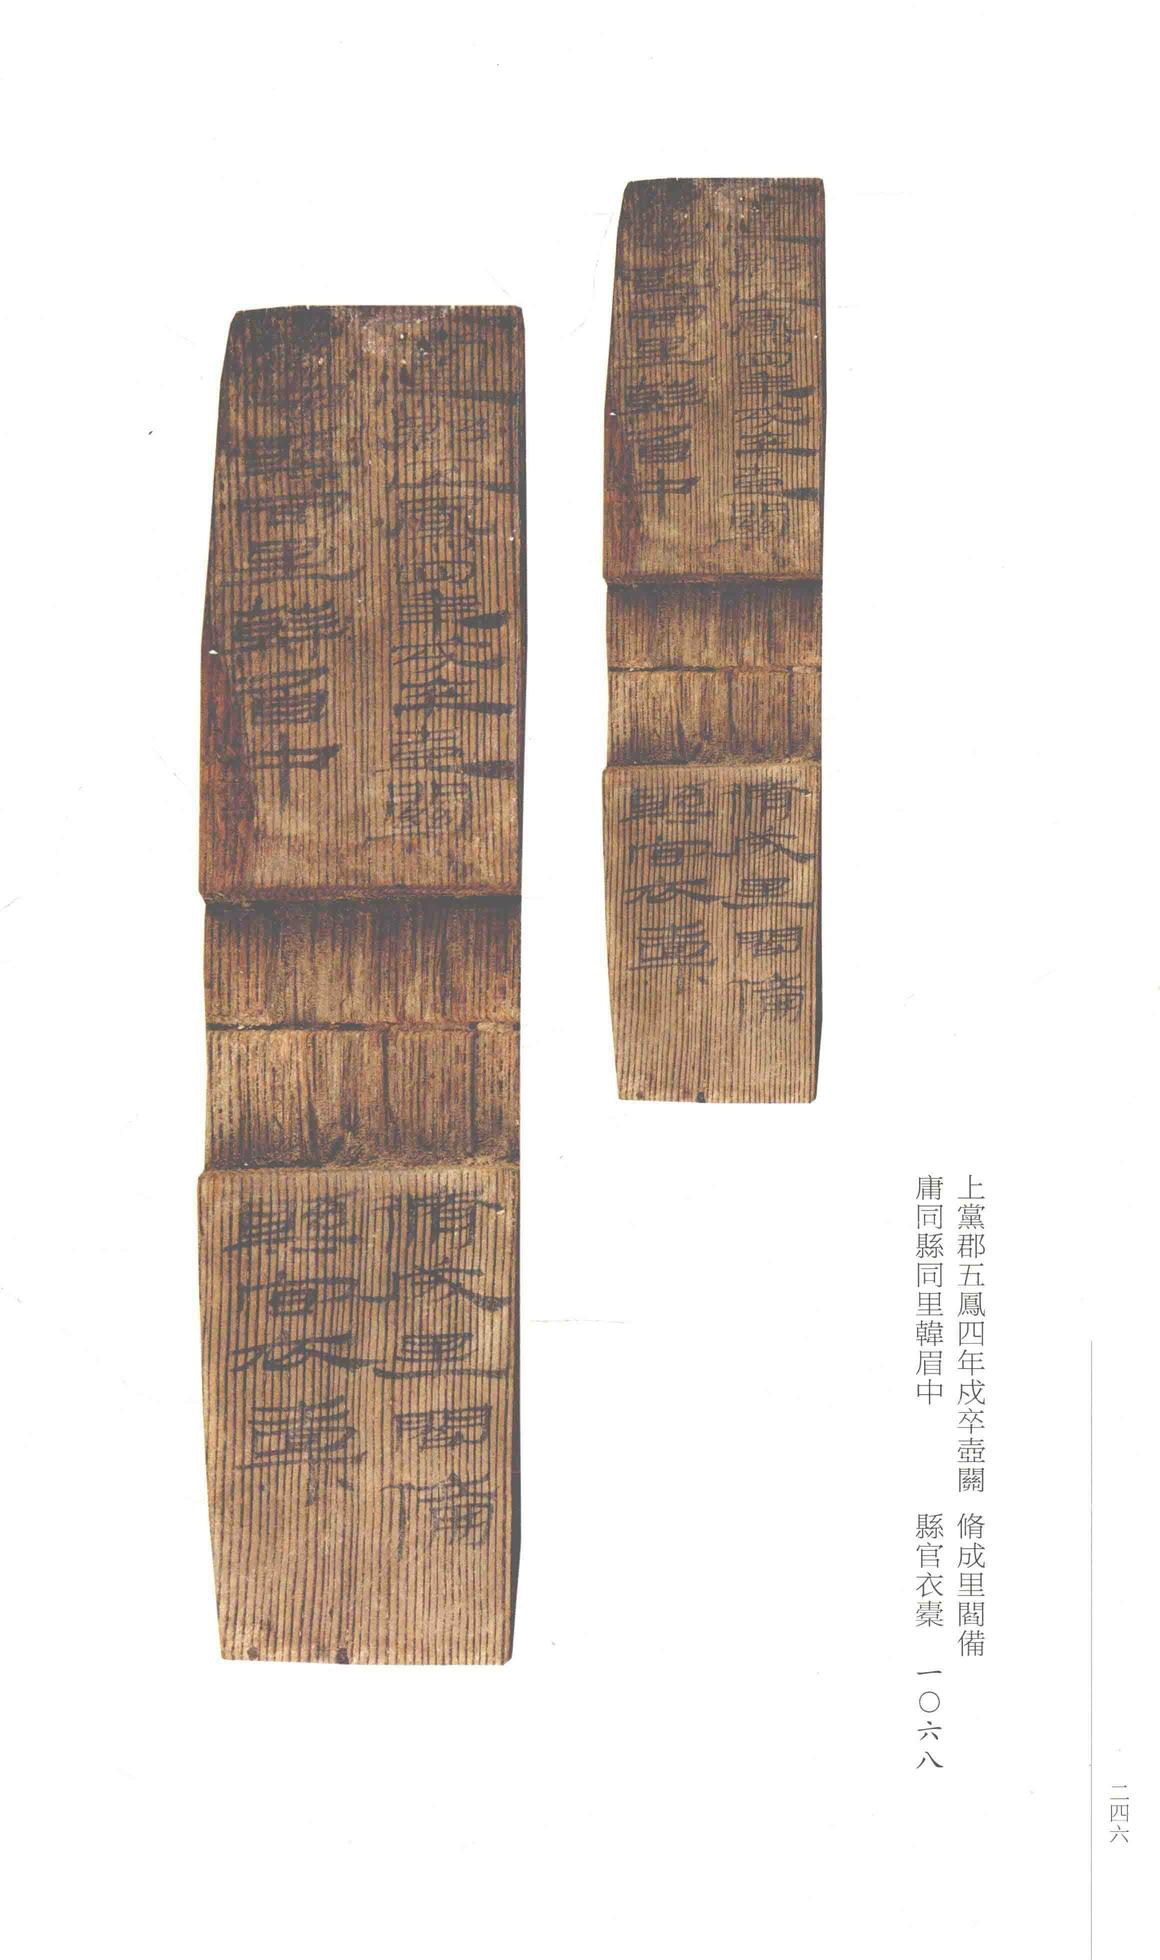 上黨郡五鳳四年戍卒壺關　脩成里閻備
庸同縣同里韓眉中　縣官衣橐　一〇六八
二四六